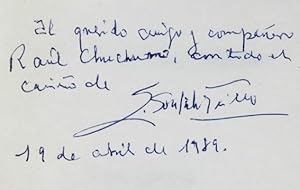 Al querido amigo y compañero
Raúl Chuchurro, con todo el
cariño de
19 de abril de 1989.